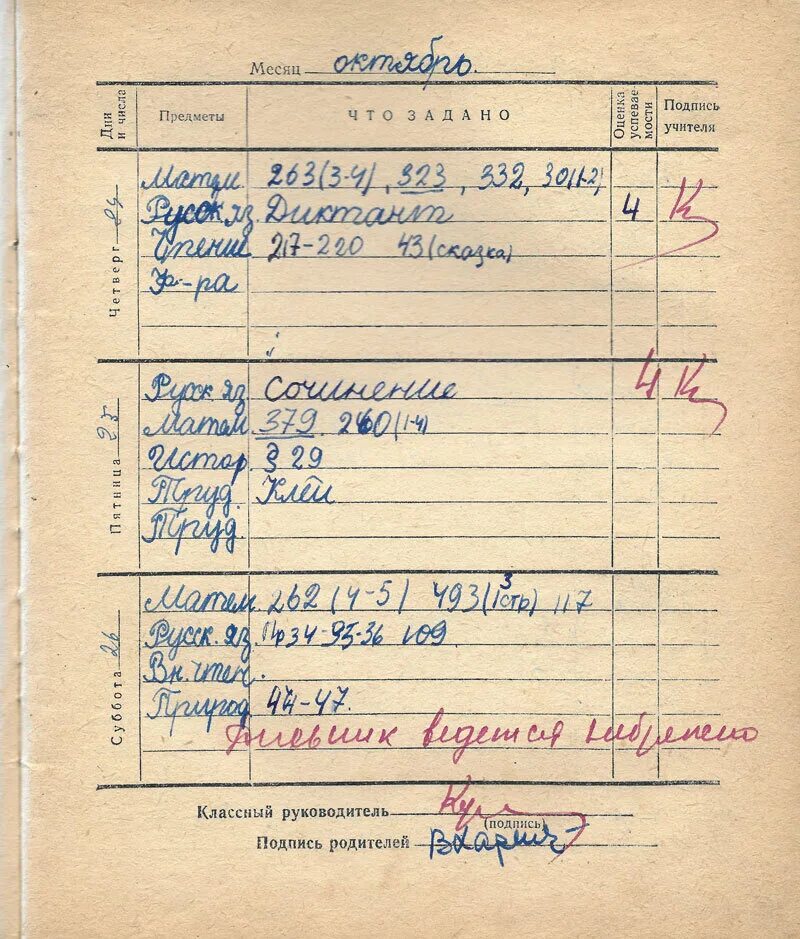 Месяц октябрь.
Дни и числа Предметы ЧТО ЗАДАНО Оценка успевае-мости Подпись учителя
Четверг 24
Матем 263(3-4), 323, 332, 30(1-2)
Русск яз. Диктант 4
Чтение 217-220 43(сказка)
Ф-ра
Пятница 25
Русск яз. Сочинение 4
Матем. 379. 260(1-4)
Истор. § 29
Труд. Клей
Труд.
Суббота 26
Матем. 262 (4-5) 493( 3 стр) 117
Русск. яз. Пр 34-35-36 109.
Вн. чтен.
Природ. 44-47.
Дневник ведется небрежно
Классный руководитель
(подпись)
Подпись родителей